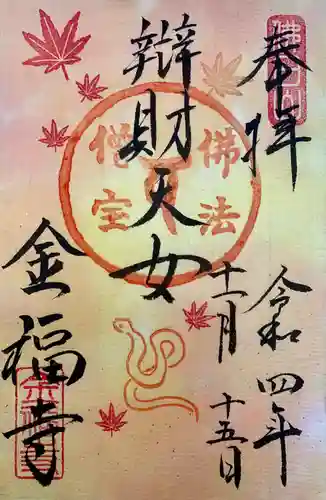 奉拝
令和四年
十一月十五日
辦財天女
佛法僧宝
金福寺